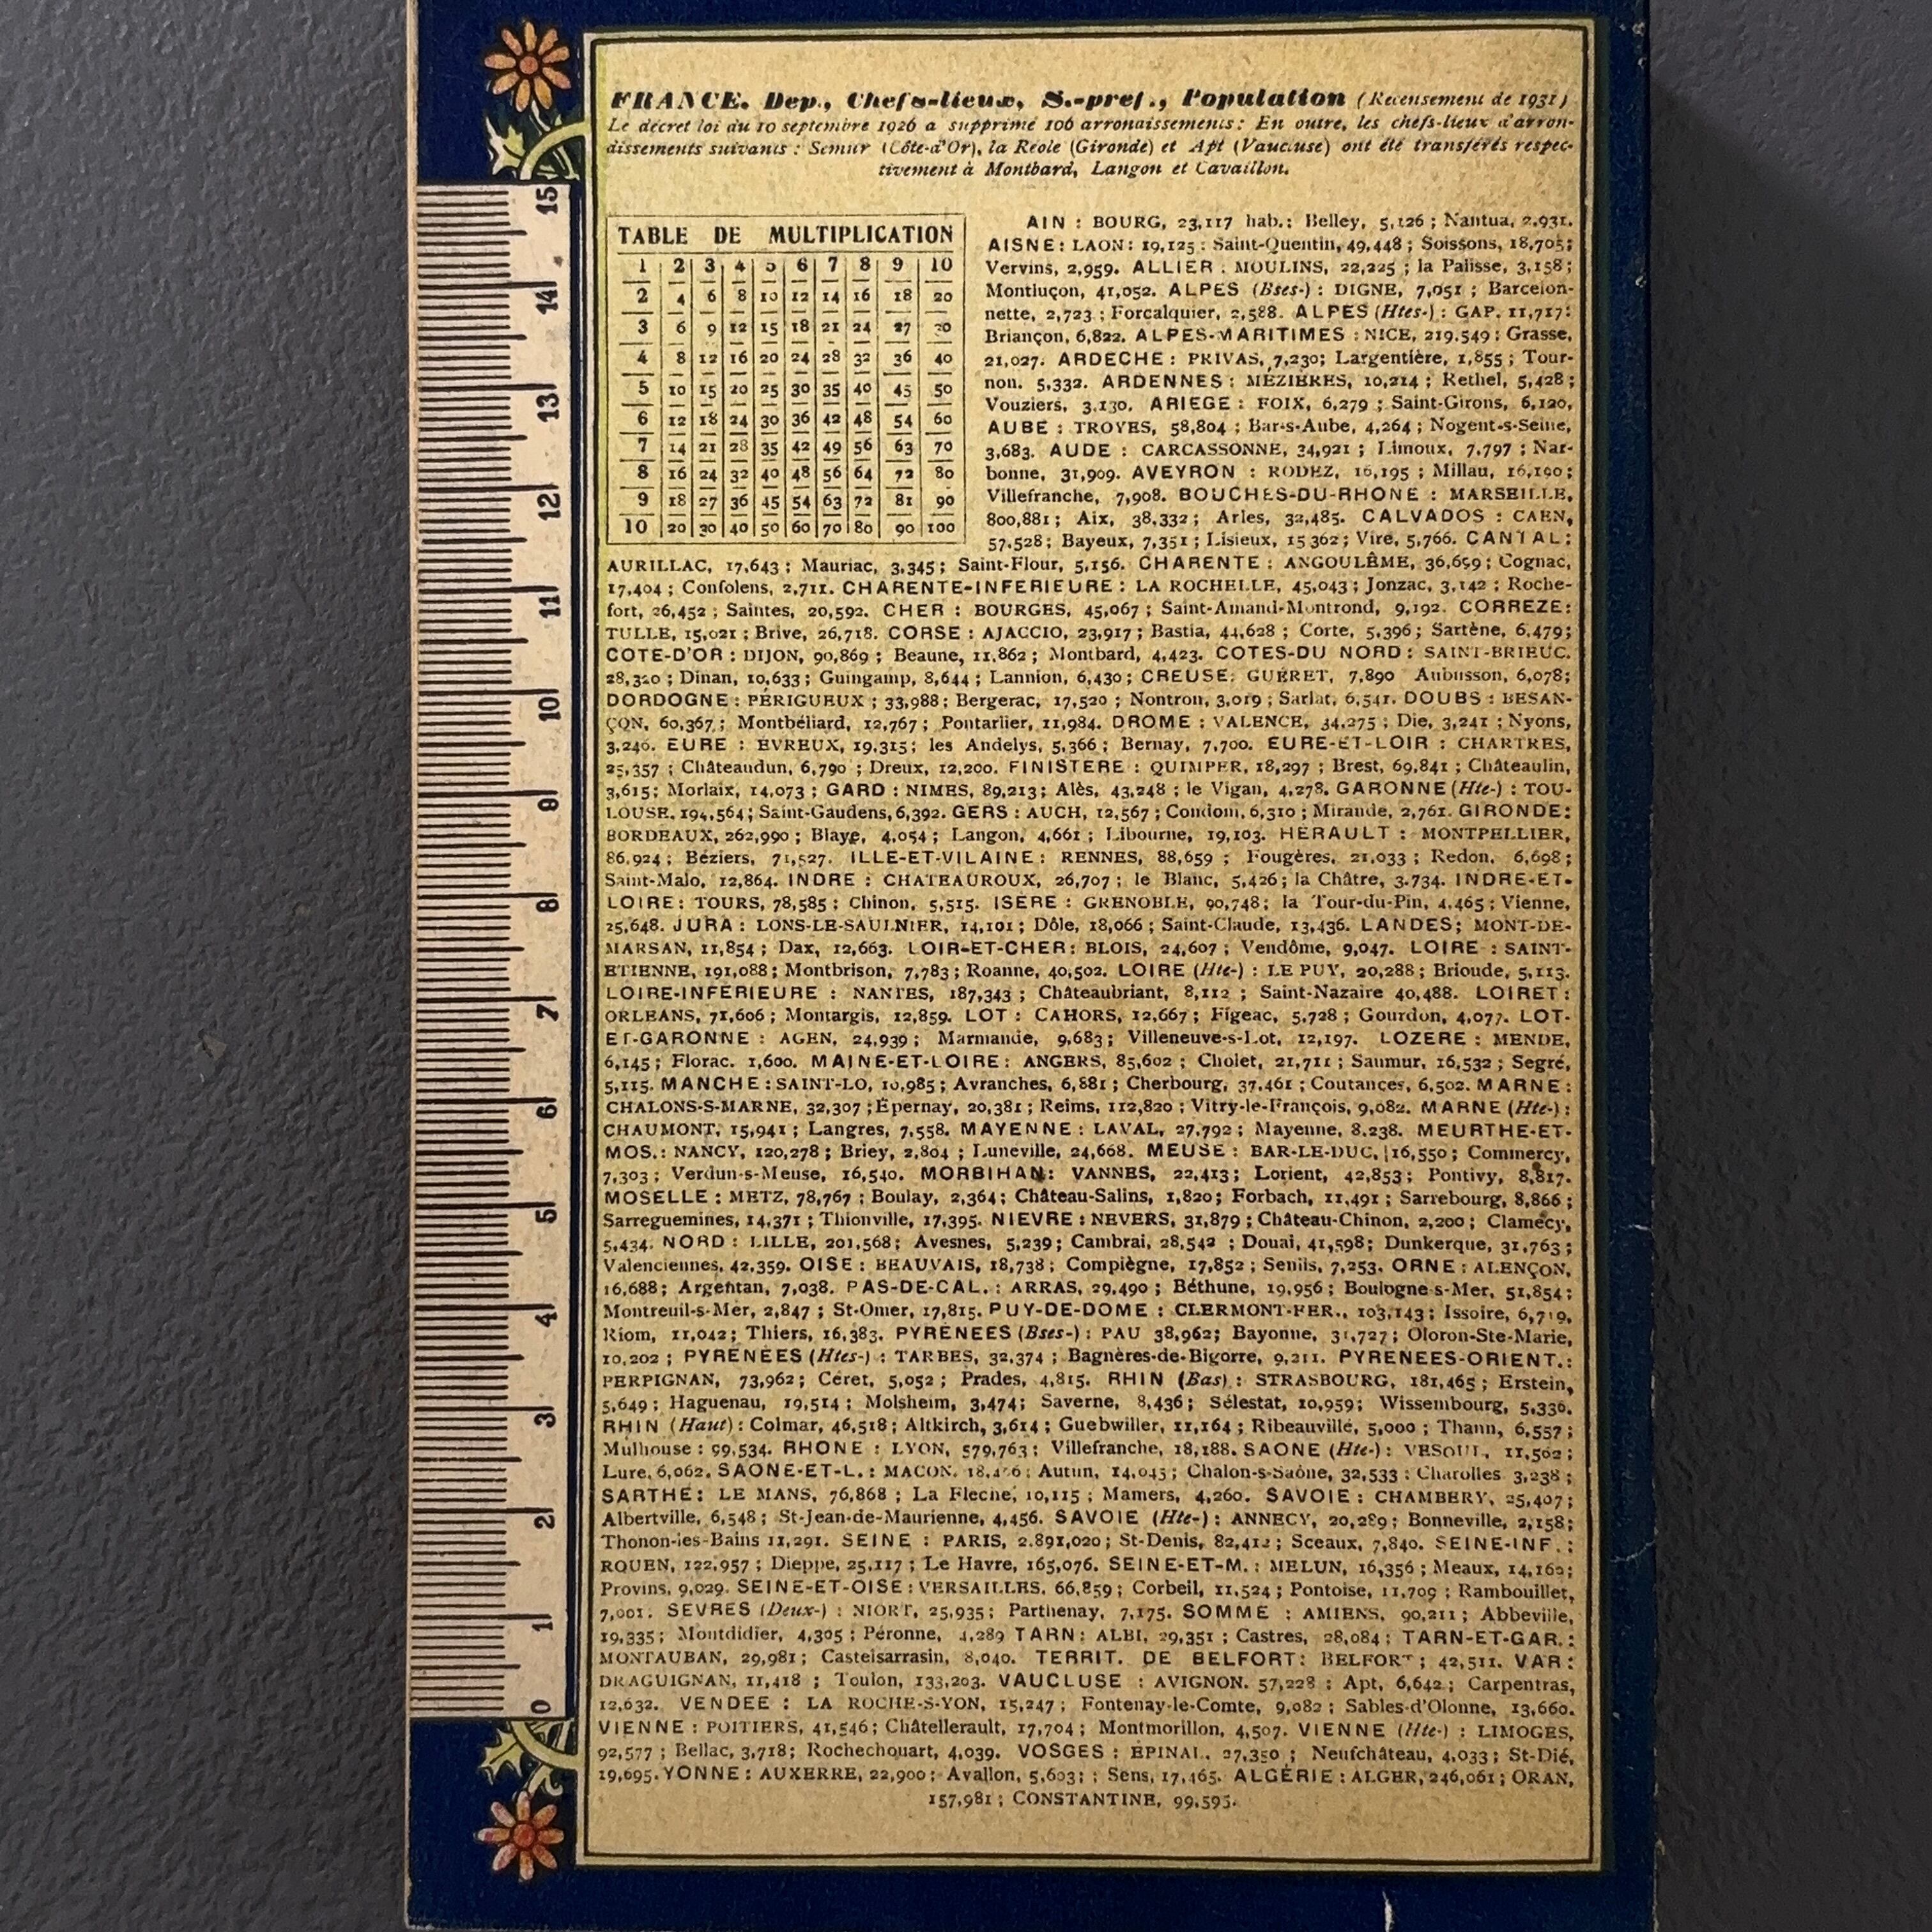 FRANCE. Dep., Chefs-lieux, S.-pref., Population (Recensement de 1931)
Le décret loi du 10 septembre 1926 a supprimé 106 arrondissements: En outre, les chefs-lieux d'arron-
dissements suivants : Semur (Côte-d'Or), la Réole (Gironde) et Apt (Vaucluse) ont été transférés respec-
tivement à Montbard, Langon et Cavaillon.
TABLE DE MULTIPLICATION
1 2 3 4 5 6 7 8 9 10
2 4 6 8 10 12 14 16 18 20
3 6 9 12 15 18 21 24 27 30
4 8 12 16 20 24 28 32 36 40
5 10 15 20 25 30 35 40 45 50
6 12 18 24 30 36 42 48 54 60
7 14 21 28 35 42 49 56 63 70
8 16 24 32 40 48 56 64 72 80
9 18 27 36 45 54 63 72 81 90
10 20 30 40 50 60 70 80 90 100
AIN : BOURG, 23,117 hab.; Belley, 5,126 ; Nantua, 2.931.
AISNE: LAON: 19,125 : Saint-Quentin, 49,448 ; Soissons, 18,705;
Vervins, 2,959. ALLIER : MOULINS, 22,225 ; la Palisse, 3,158;
Montluçon, 41,052. ALPES (Bses-) : DIGNE, 7,051 ; Barcelon-
nette, 2,723 ; Forcalquier, 2,588. ALPES (Htes-) : GAP, 11,717:
Briançon, 6,822. ALPES-MARITIMES : NICE, 219,549 : Grasse,
21,027. ARDECHE : PRIVAS, 7,230; Largentière, 1,855 ; Tour-
non. 5,332. ARDENNES : MEZIERES, 10,214 ; Rethel, 5,428 ;
Vouziers, 3,130. ARIEGE : FOIX, 6,279 ; Saint-Girons, 6,120,
AUBE : TROYES, 58,804 ; Bar-s-Aube, 4,264 ; Nogent-s-Seine,
3,683. AUDE : CARCASSONNE, 34,921 ; Limoux, 7,797 ; Nar-
bonne, 31,909. AVEYRON : RODEZ, 16,195 ; Millau, 16,190;
Villefranche, 7,908. BOUCHES-DU-RHONE : MARSEILLE,
800,881; Aix, 38,332; Arles, 32,485. CALVADOS : CAEN,
57,528; Bayeux, 7,351 ; Lisieux, 15 362; Vire, 5,766. CANTAL:
AURILLAC, 17,643 ; Mauriac, 3,345; Saint-Flour, 5,156. CHARENTE : ANGOULÊME, 36,699; Cognac,
17,404 ; Confolens, 2,711. CHARENTE-INFERIEURE : LA ROCHELLE, 45,043; Jonzac, 3,142 ; Roche-
fort, 26,452 ; Saintes, 20,592. CHER : BOURGES, 45,067 ; Saint-Amand-Montrond, 9,192. CORREZE:
TULLE, 15,021 ; Brive, 26,718. CORSE : AJACCIO, 23,917; Bastia, 44,628 ; Corte, 5,396; Sartène, 6,479;
COTE-D'OR : DIJON, 90,869 ; Beaune, 11,862; Montbard, 4,423. COTES-DU NORD : SAINT-BRIEUC.
28,320 ; Dinan, 10,633; Guingamp, 8,644 ; Lannion, 6,430; CREUSE: GUÉRET, 7,890 Aubusson, 6,078;
DORDOGNE : PÉRIGUEUX ; 33,988; Bergerac, 17,520 ; Nontron, 3,019 ; Sarlat, 6,541. DOUBS : BESAN-
ÇON, 60,367,; Montbéliard, 12,767; Pontarlier, 11,984. DROME : VALENCE, 34,275 ; Die, 3,241 ; Nyons,
3,246. EURE : EVREUX, 19,315; les Andelys, 5,366; Bernay, 7,700. EURE-ET-LOIR : CHARTRES,
25,357 ; Châteaudun, 6,790 ; Dreux, 12,200. FINISTERE : QUIMPER, 18,297 ; Brest, 69,841 ; Châteaulin,
3,615; Morlaix, 14,073 ; GARD : NIMES, 89,213; Alès, 43,248 ; le Vigan, 4,278. GARONNE (Hte-) : TOU-
LOUSE, 194,564; Saint-Gaudens, 6,392. GERS : AUCH, 12,567 ; Condom, 6,310 ; Mirande, 2,761. GIRONDE:
BORDEAUX, 262,990 ; Blaye, 4,054 ; Langon, 4,661 ; Libourne, 19,103. HERAULT : MONTPELLIER,
86,924 ; Béziers, 71,527. ILLE-ET-VILAINE : RENNES, 88,659 ; Fougères, 21,033 ; Redon, 6,698;
Saint-Malo, 12,864. INDRE : CHATEAUROUX, 26,707 ; le Blanc, 5,426; la Châtre, 3.734. INDRE-ET-
LOIRE: TOURS, 78,585 ; Chinon, 5,515. ISERE : GRENOBLE, 90,748; la Tour-du-Pin, 4,465 ; Vienne,
25,648. JURA : LONS-LE-SAULNIER, 14,101; Dôle, 18,066 ; Saint-Claude, 13,436. LANDES; MONT-DE-
MARSAN, 11,854 ; Dax, 12,663. LOIR-ET-CHER: BLOIS, 24,607 ; Vendôme, 9,047. LOIRE : SAINT-
ETIENNE, 191,088; Montbrison, 7,783; Roanne, 40,502. LOIRE (Hte-) : LE PUY, 20,288; Brioude, 5,113.
LOIRE-INFERIEURE : NANTES, 187,343 ; Châteaubriant, 8,112 ; Saint-Nazaire 40,488. LOIRET :
ORLEANS, 71,606 ; Montargis, 12,859. LOT : CAHORS, 12,667 ; Figeac, 5,728 ; Gourdon, 4,077. LOT-
ET-GARONNE : AGEN, 24,939 ; Marmande, 9,683 ; Villeneuve-s-Lot, 12,197. LOZERE : MENDE,
6,145 ; Florac. 1,600. MAINE-ET-LOIRE: ANGERS, 85,602 ; Cholet, 21,711 ; Saumur, 16,532 ; Segré,
5,115. MANCHE : SAINT-LO, 10,985; Avranches, 6,881; Cherbourg, 37,461 ; Coutances, 6,502. MARNE :
CHALONS-S-MARNE, 32,307 ; Épernay, 20,381 ; Reims, 112,820 ; Vitry-le-François, 9,082. MARNE (Hte-) :
CHAUMONT, 15,941 ; Langres, 7,558. MAYENNE : LAVAL, 27,792 ; Mayenne, 8,238. MEURTHE-ET-
MOS.: NANCY, 120,278 ; Briey, 2,804 ; Luneville, 24,668. MEUSE : BAR-LE-DUC, 16,550 ; Commercy,
7,303 ; Verdun-s-Meuse, 16,540. MORBIHAN: VANNES, 22,413; Lorient, 42,853 ; Pontivy, 8,817.
MOSELLE : METZ, 78,767 ; Boulay, 2,364; Château-Salins, 1,820; Forbach, 11,491 ; Sarrebourg, 8,866 ;
Sarreguemines, 14,371 ; Thionville, 17,395. NIEVRE : NEVERS, 31,879 ; Château-Chinon, 2,200 ; Clamecy,
5,434. NORD : LILLE, 201,568; Avesnes, 5,239; Cambrai, 28,542 ; Douai, 41,598; Dunkerque, 31,763 ;
Valenciennes, 42,359. OISE : BEAUVAIS, 18,738 ; Compiègne, 17,852 ; Senlis, 7,253. ORNE : ALENÇON,
16,688; Argentan, 7,038. PAS-DE-CAL. : ARRAS, 29,490 ; Béthune, 19,956 ; Boulogne-s-Mer, 51,854;
Montreuil-s-Mer, 2,847 ; St-Omer, 17,815. PUY-DE-DOME : CLERMONT-FER., 103,143; Issoire, 6,719,
Riom, 11,042; Thiers, 16,383. PYRENEES (Bses-) : PAU 38,962; Bayonne, 31,727; Oloron-Ste-Marie,
10,202 ; PYRENEES (Htes-) : TARBES, 32,374 ; Bagnères-de-Bigorre, 9,211. PYRENEES-ORIENT.:
PERPIGNAN, 73,962; Céret, 5,052 ; Prades, 4,815. RHIN (Bas) : STRASBOURG, 181,465 ; Erstein,
5,649; Haguenau, 19,514; Molsheim, 3,474; Saverne, 8,436; Sélestat, 10,959; Wissembourg, 5,336.
RHIN (Haut) : Colmar, 46,518; Altkirch, 3,614 ; Guebwiller, 11,164 ; Ribeauvillé, 5,000 ; Thann, 6,557 ;
Mulhouse : 99,534. RHONE : LYON, 579,763; Villefranche, 18,188. SAONE (Hte-) : VESOUL, 11,562 ;
Lure, 6,062. SAONE-ET-L. : MACON. Autun, 14,045; Chalon-s-Saône, 32,533 : Charolles 3,238 ;
SARTHE: LE MANS, 76,868 ; La Fleche, 10,115 ; Mamers, 4,260. SAVOIE : CHAMBERY, 25,407;
Albertville, 6,548 ; St-Jean-de-Maurienne, 4,456. SAVOIE (Hte-) : ANNECY, 20,289; Bonneville, 2,158;
Thonon-les-Bains 11,291. SEINE : PARIS, 2.891,020 ; St-Denis, 82,412 ; Sceaux, 7,840. SEINE-INF. :
ROUEN, 122,957 ; Dieppe, 25,117 ; Le Havre, 165,076. SEINE-ET-M. : MELUN, 16,356 ; Meaux, 14,162;
Provins, 9,029. SEINE-ET-OISE : VERSAILLES. 66,859 ; Corbeil, 11,524 ; Pontoise, 11,709 ; Rambouillet,
7,001. SEVRES (Deux-) : NIORT, 25,935; Parthenay, 7,175. SOMME : AMIENS, 90,211; Abbeville,
19,335; Montdidier, 4,305 ; Péronne, 4,289 TARN: ALBI, 29,351 ; Castres, 28,084 ; TARN-ET-GAR.:
MONTAUBAN, 29,981; Castelsarrasin, 8,040. TERRIT. DE BELFORT: BELFORT ; 42,511. VAR :
DRAGUIGNAN, 11,418 ; Toulon, 133,203. VAUCLUSE : AVIGNON. 57,228 : Apt, 6,642; Carpentras,
12,632. VENDEE : LA ROCHE-S-YON, 15,247 ; Fontenay-le-Comte, 9,082 ; Sables-d'Olonne, 13,660.
VIENNE : POITIERS, 41,546; Châtellerault, 17,704 ; Montmorillon, 4,507. VIENNE (Hte-) : LIMOGES,
92,577 ; Bellac, 3,718; Rochechouart, 4,039. VOSGES : EPINAL. 27,350 ; Neufchâteau, 4,033; St-Dié,
19,695. YONNE : AUXERRE, 22,900; Avallon, 5,603; ; Sens, 17,465. ALGÉRIE : ALGER, 246,061; ORAN,
157,981 ; CONSTANTINE, 99,595.
15
14
13
12
11
10
9
8
7
6
5
4
3
2
1
0